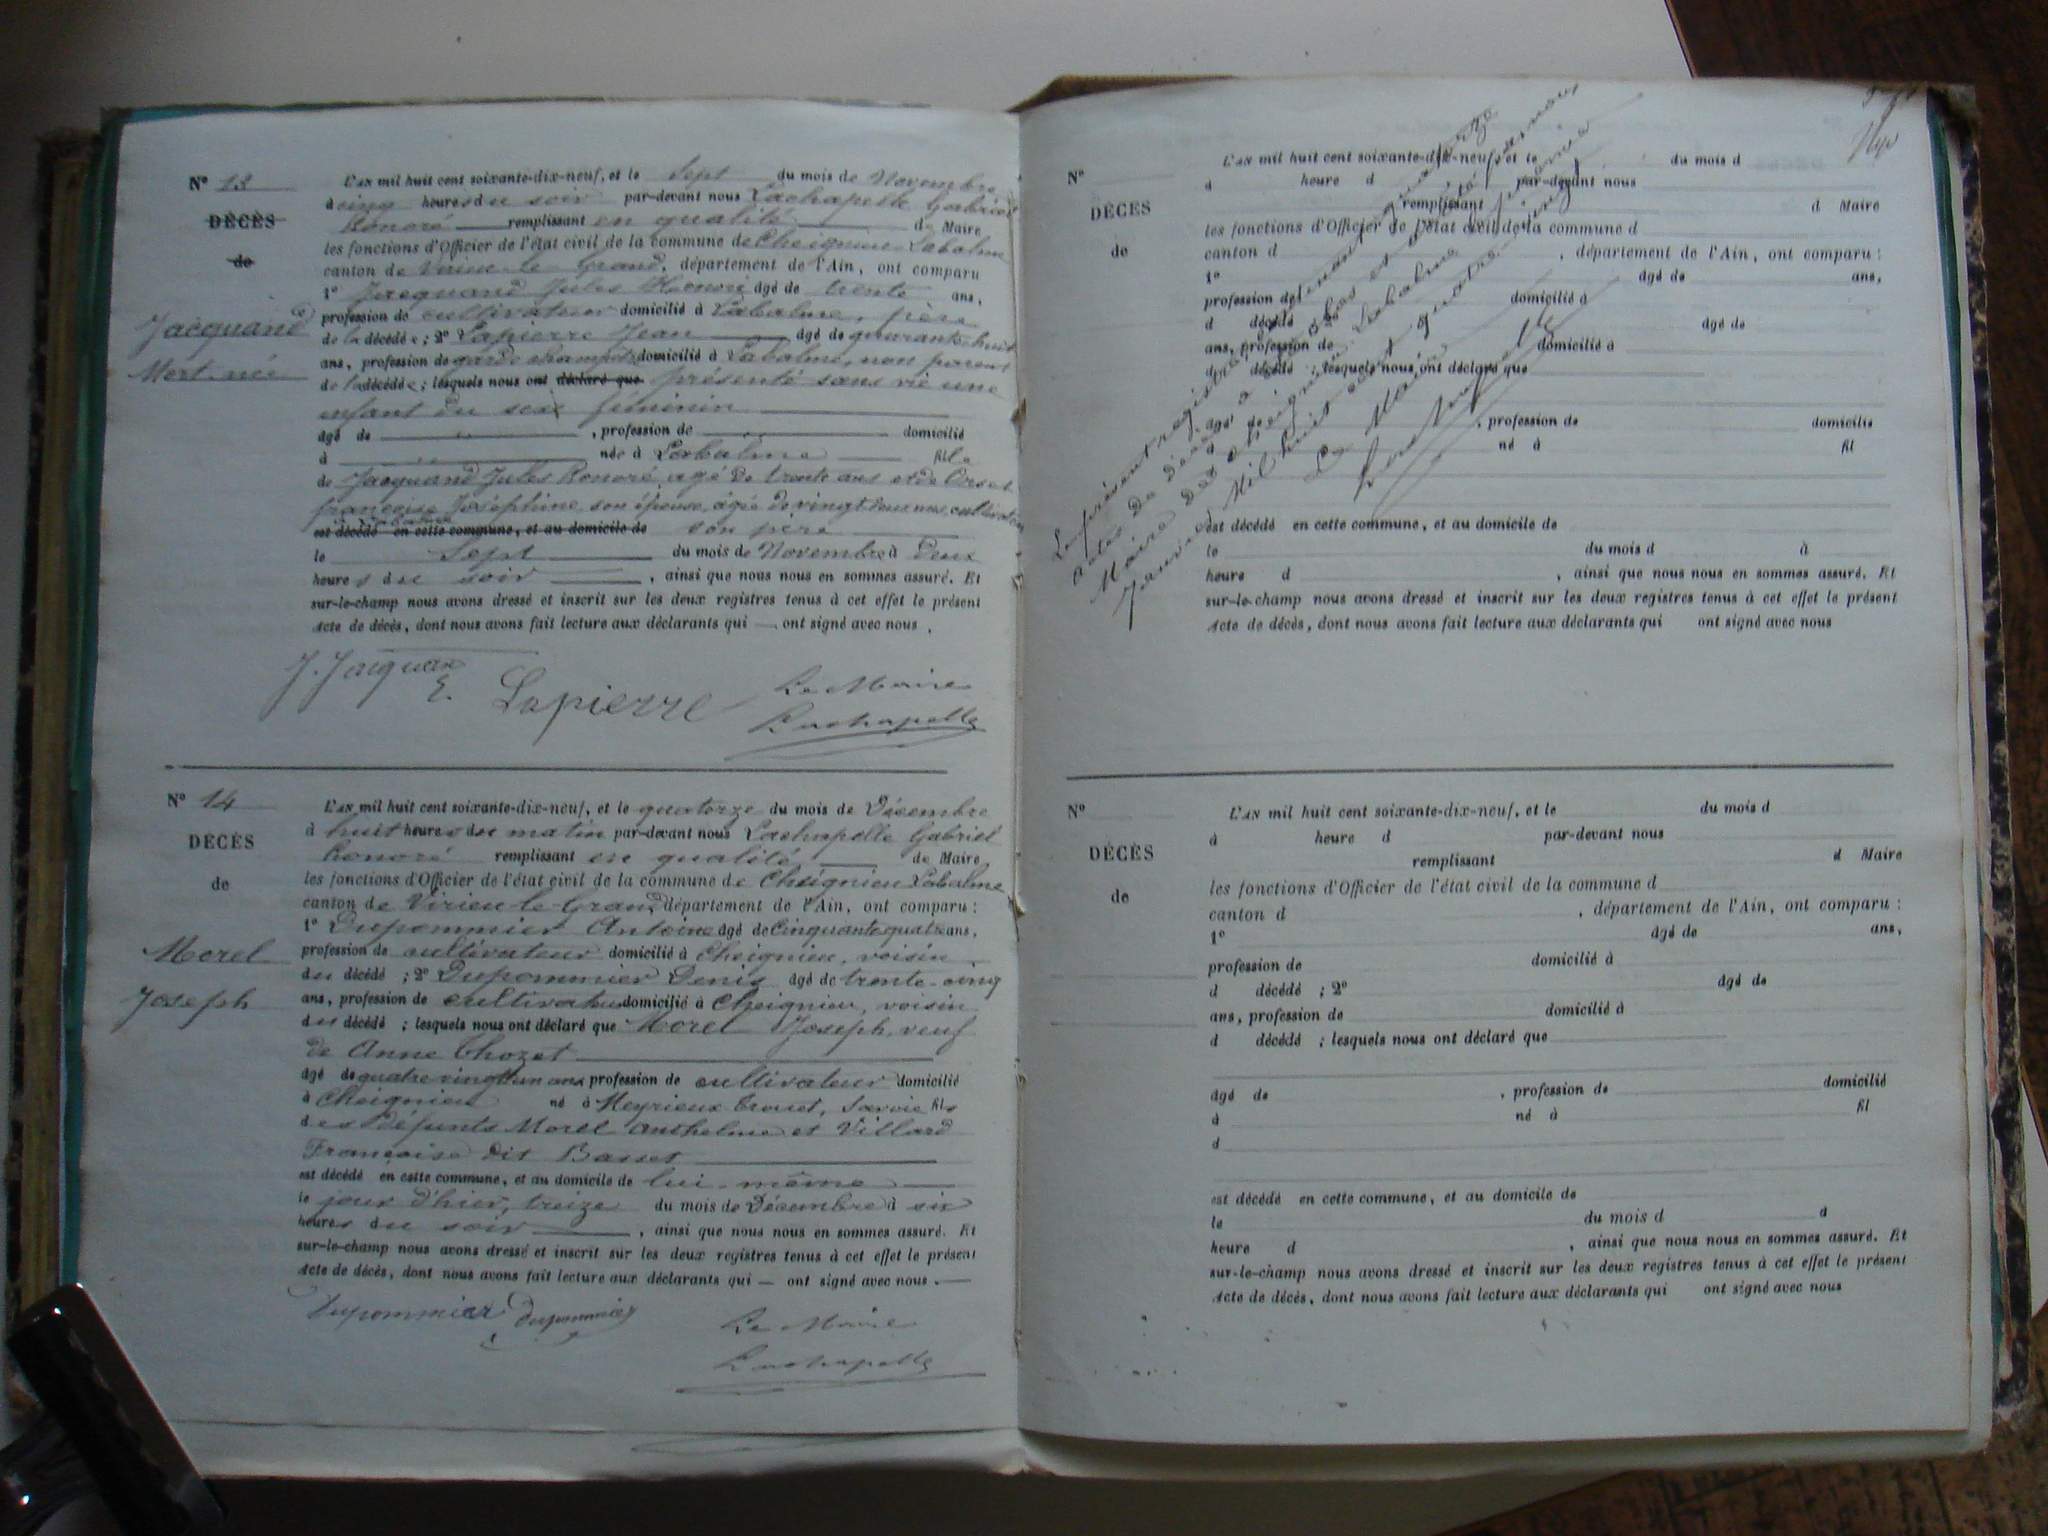 N° 13
DÉCÈS
de
Jacquand
Mort-née
L'AN mil huit cent soixante-dix-neuf, et le Sept du mois de Novembre
à cinq heures du soir par-devant nous Lachapelle Gabriel
honoré remplissant en qualité de Maire
les fonctions d'Officier de l'état civil de la commune de Cheignieu Labalme
canton de Virieu-le-Grand, département de l'Ain, ont comparu
1° Jacquand Jules Honoré âgé de trente ans,
profession de cultivateur domicilié à Labalme, père
de la décédée ; 2° Lapierre Jean âgé de quarante-huit
ans, profession de garde champêtre domicilié à Labalme, non parent
de la décédée ; lesquels nous ont déclaré que présenté sans vie une
enfant du sexe féminin
âgé de , profession de domicilié
à née à Labalme fille
de Jacquand Jules Honoré, agé de trente ans et de Orset
françoise Joséphine, son épouse, âgée de vingt deux ans, cultivateurs
est décédé en cette commune, et au domicile de son père
le Sept du mois de Novembre à deux
heures du soir , ainsi que nous nous en sommes assuré. Et
sur-le-champ nous avons dressé et inscrit sur les deux registres tenus à cet effet le présent
Acte de décès, dont nous avons fait lecture aux déclarants qui — ont signé avec nous.
J. Jacquand
Lapierre
Le Maire
Lachapelle
N° 14
DÉCÈS
de
Morel
Joseph
L'AN mil huit cent soixante-dix-neuf, et le quatorze du mois de Décembre
à huit heures du matin par-devant nous Lachapelle Gabriel
honoré remplissant en qualité de Maire
les fonctions d'Officier de l'état civil de la commune de Cheignieu Labalme
canton de Virieu-le-Grand, département de l'Ain, ont comparu :
1° Dupommier Antoine âgé de Cinquante quatre ans,
profession de cultivateur domicilié à Cheignieu, voisin
du décédé ; 2° Dupommier Denis âgé de trente-cinq
ans, profession de cultivateur domicilié à Cheignieu, voisin
du décédé ; lesquels nous ont déclaré que Morel Joseph, veuf
de Anne Chozet
âgé de quatre vingt un ans profession de cultivateur domicilié
à Cheignieu né à Meyrieux-Trouet, Savoie fils
des défunts Morel Anthelme et Villard
Françoise dit Basset
est décédé en cette commune, et au domicile de lui-même
le jour d'hier, treize du mois de Décembre à six
heures du soir , ainsi que nous nous en sommes assuré. Et
sur-le-champ nous avons dressé et inscrit sur les deux registres tenus à cet effet le présent
Acte de décès, dont nous avons fait lecture aux déclarants qui — ont signé avec nous.
Dupommier Dupommier
Le Maire
Lachapelle
N°
DÉCÈS
de
L'AN mil huit cent soixante-dix-neuf, et le du mois d
à heure d par-devant nous
remplissant d Maire
les fonctions d'Officier de l'état civil de la commune d
canton d , département de l'Ain, ont comparu :
1° âgé de ans,
profession de domicilié à
d décédé ; 2° âgé de
ans, profession de domicilié à
d décédé ; lesquels nous ont déclaré que
âgé de , profession de domicilié
né à fil
est décédé en cette commune, et au domicile de
le du mois d à
heure d , ainsi que nous nous en sommes assuré. Et
sur-le-champ nous avons dressé et inscrit sur les deux registres tenus à cet effet le présent
Acte de décès, dont nous avons fait lecture aux déclarants qui ont signé avec nous
Le présent registre contenant quatorze
actes de décès a été clos et arrêté par nous
Maire de Cheignieu Labalme
Janvier Mil huit cent quatre vingt
Le Maire
Lachapelle
N°
DÉCÈS
de
L'AN mil huit cent soixante-dix-neuf, et le du mois d
à heure d par-devant nous
remplissant d Maire
les fonctions d'Officier de l'état civil de la commune d
canton d , département de l'Ain, ont comparu :
1° âgé de ans,
profession de domicilié à
d décédé ; 2° âgé de
ans, profession de domicilié à
d décédé ; lesquels nous ont déclaré que
âgé de , profession de domicilié
à né à fil
d
est décédé en cette commune, et au domicile de
le du mois d à
heure d , ainsi que nous nous en sommes assuré. Et
sur-le-champ nous avons dressé et inscrit sur les deux registres tenus à cet effet le présent
Acte de décès, dont nous avons fait lecture aux déclarants qui ont signé avec nous